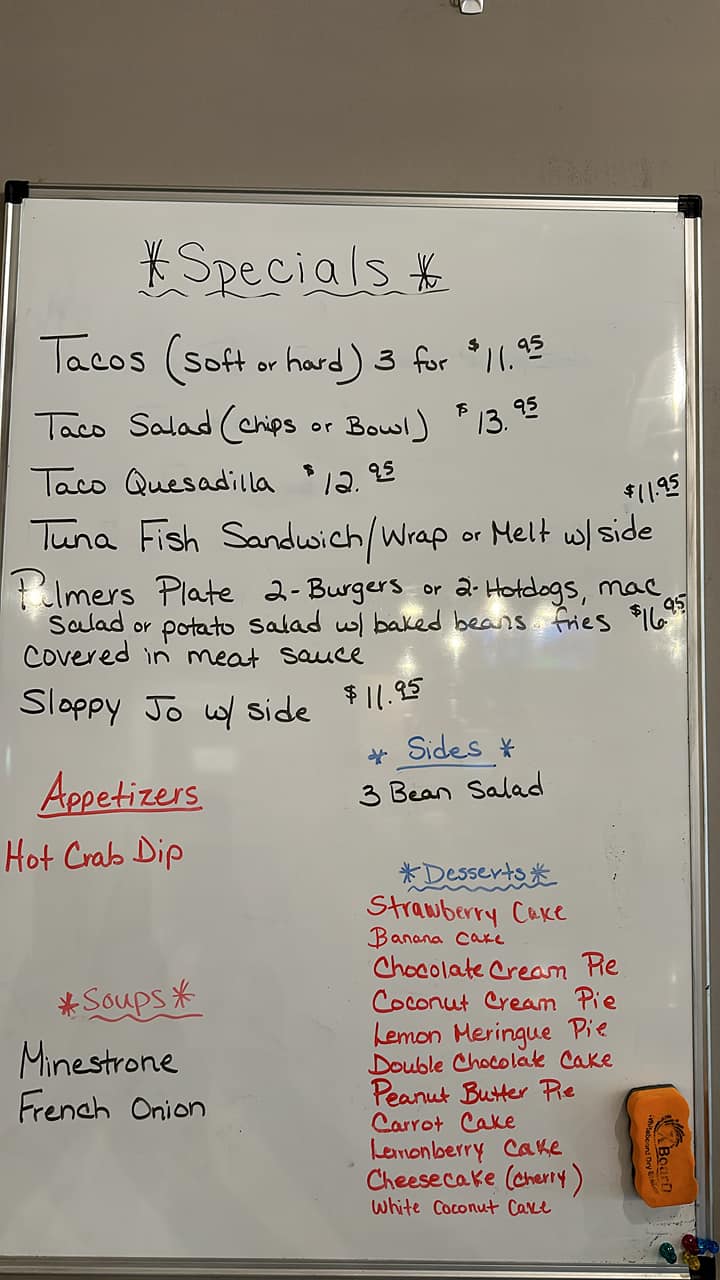 *Specials*
Tacos (soft or hard) 3 for $11.95
Taco Salad (chips or Bowl) $13.95
Taco Quesadilla $12.95
$11.95
Tuna Fish Sandwich/Wrap or Melt w/side
Palmers Plate 2-Burgers or 2-Hotdogs, mac
salad or potato salad w/ baked beans. fries $16.95
covered in meat sauce
Sloppy Jo w/ side $11.95
* Sides *
3 Bean Salad
Appetizers
Hot Crab Dip
*Desserts*
Strawberry Cake
Banana cake
Chocolate Cream Pie
Coconut Cream Pie
Lemon Meringue Pie
Double Chocolate Cake
Peanut Butter Pie
Carrot Cake
Lemonberry Cake
Cheesecake (cherry)
White Coconut Cake
*Soups*
Minestrone
French Onion
Board